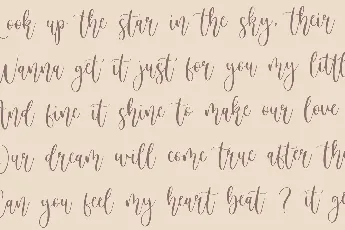 Look up the star in the sky, their
Wanna get it just for you my littl
And fine it shine to make our love
Our dream will come true after tha
Can you feel my heart beat ? it ge